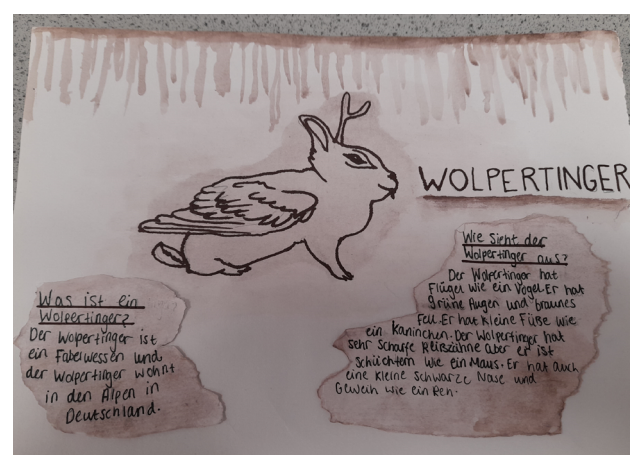 WOLPERTINGER
Was ist ein
Wolpertinger?
Der Wolpertinger ist
ein Fabelwessen und
der Wolpertinger wohnt
in den Alpen in
Deutschland.
Wie sieht der
Wolpertinger aus?
Der Wolpertinger hat
Flügel wie ein Vogel. Er hat
grüne Augen und braunes
Fell. Er hat kleine Füße wie
ein Kaninchen. Der Wolpertinger hat
sehr scharfe Reißzähne aber er ist
schüchtern wie ein Maus. Er hat auch
eine kleine schwarze Nase und
Geweih wie ein Reh.